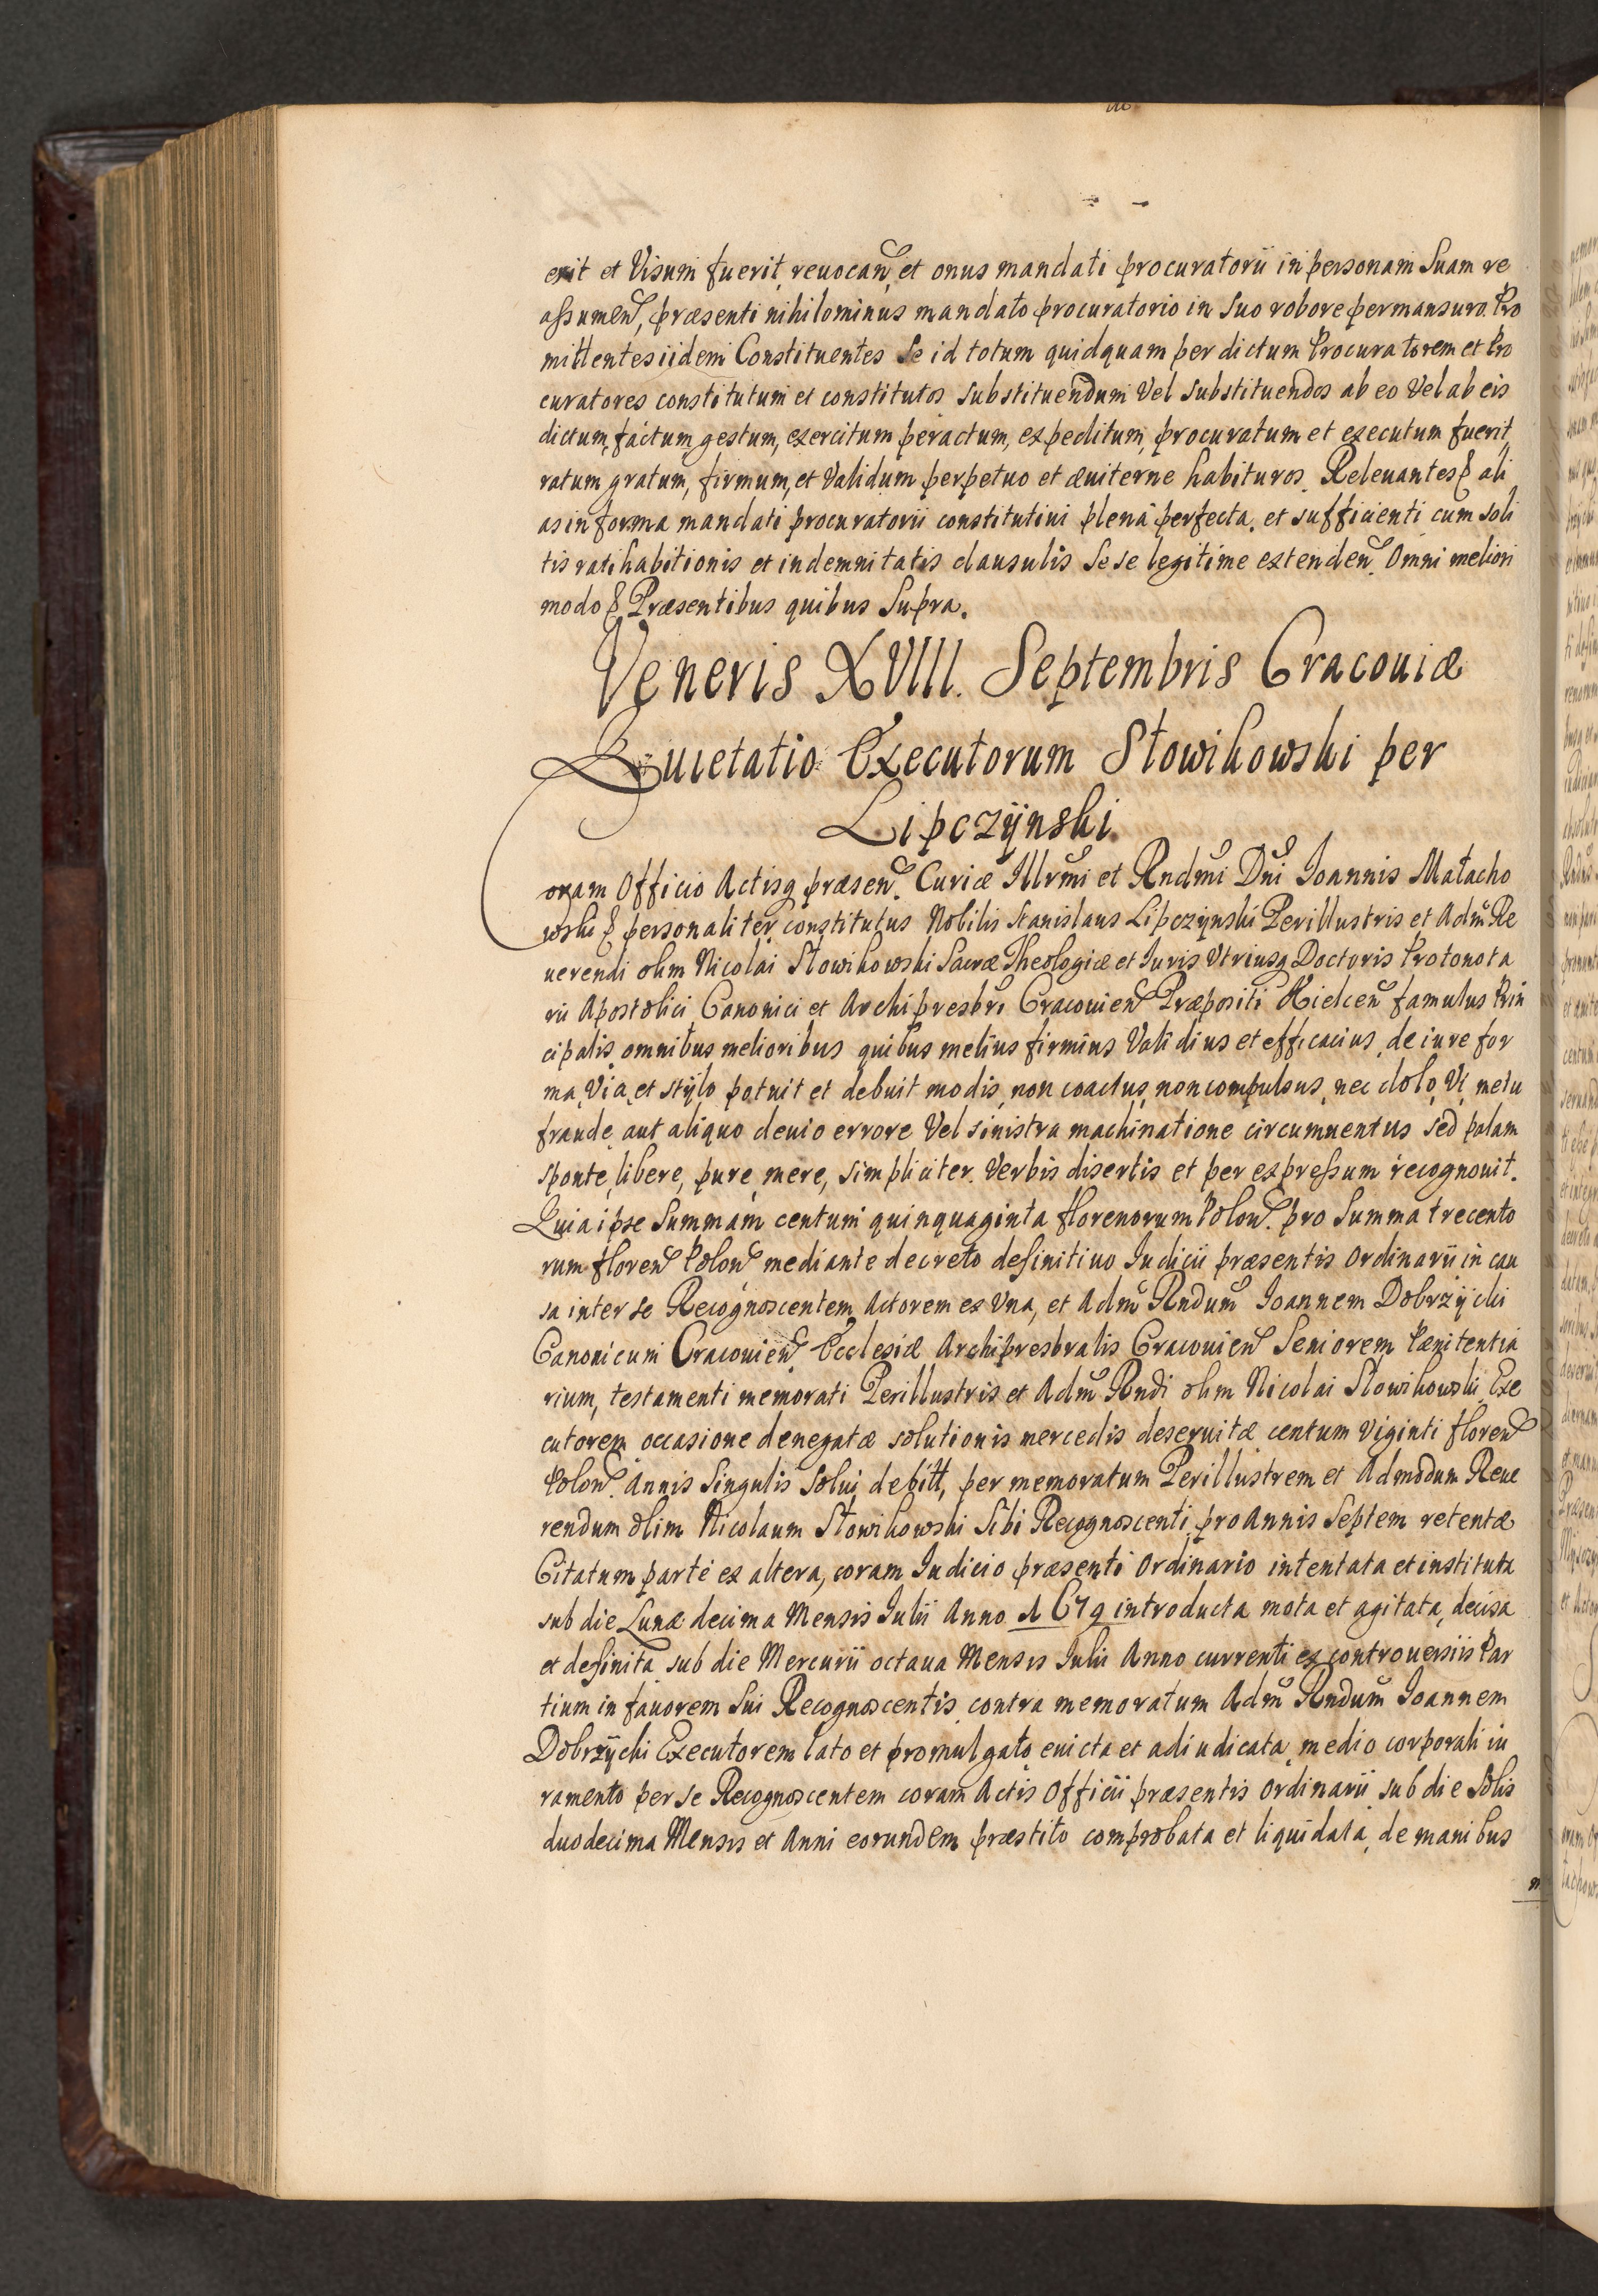 erit et Visum fuerit, reuocan, et onus mandati procuratorii in personam Suam re
assumen, præsenti nihilominus mandato procuratorio in Suo robore permansuro. Pro
mittentes iidem Constituentes Se id totum quidquam per dictum Procuratorem et Pro
curatores constitutum et constitutos substituendum Vel substituendos ab eo Vel ab eis
dictum, factum, gestum, exercitum peractum, expeditum, procuratum et executum fuerit,
ratum gratum, firmum, et Validum perpetuo et æuiterne habituros. Releuantes & ali
as in forma mandati procuratorii constitutiui plena perfecta, et sufficienti cum soli
tis ratihabitionis et indemnitatis clausulis Sese legitime extenden. Omni meliori
modo & Præsentibus quibus Supra.
Veneris XVIII. Septembris Cracouiæ
Quietatio Executorum Słowikowski per
Lipczÿnski
Coram Officio Actisq præsen. Curiæ Illrmi et Rndmi Dni Joannis Małacho
wski & personaliter constitutus Nobilis Stanislaus Lipczÿnski Perillustris et Adm Re
uerendi olim Nicolai Słowikowski Sacræ Theologiæ et Iuris Vtriusq Doctoris Protonota
rii Apostolici Canonici et Archipresbri Cracouien Præpositi Kielcen famulus Prin
cipalis omnibus melioribus quibus melius firmius Validius et efficacius, de iure for
ma, Via, et stÿlo potuit et debuit modis, non coactus, non compulsus, nec dolo, Vi, metu
fraude, aut aliquo deuio errore Vel sinistra machinatione circumuentus sed palam
sponte, libere, pure, mere, simpliciter. Verbis disertis et per expressum recognouit.
Quia ipse Summam centum quinquaginta florenorum Polon. pro Summa trecento
rum floren Polon mediante decreto definitiuo Iudicii præsentis Ordinarii in cau
sa inter se Recognoscentem Actorem ex Vna, et Adm Rndum Joannem Dobrzÿcki
Canonicum Cracouien. Ecclesiæ Archipresbralis Cracouien Seniorem Pænitentia
rium, testamenti memorati Perillustris et Adm Rndi olim Nicolai Słowikowski Exe
cutorem occasione denegatæ solutionis mercedis deseruitæ centum Viginti floren
Polon. Annis Singulis Solui debitt, per memoratum Perillustrem et Admodum Reue
rendum olim Nicolaum Słowikowski Sibi Recognoscenti pro Annis Septem retentæ
Citatum parte ex altera, coram Iudicio præsenti Ordinario intentata et instituta
sub die Lunæ decima Mensis Iulii Anno 1679 introducta mota et agitata, decisa
et definita sub die Mercurii octaua Mensis Iulii Anno currenti ex controuersiis Par
tium in fauorem Sui Recognoscentis contra memoratum Adm Rndum Joannem
Dobrzÿcki Executorem lato et promulgato, euicta et adiudicata, medio corporali iu
ramento per se Recognoscentem coram Actis Officii præsentis Ordinarii sub die Solis
duodecima Mensis et Anni eorundem præstito comprobata et liquidata, de manibus